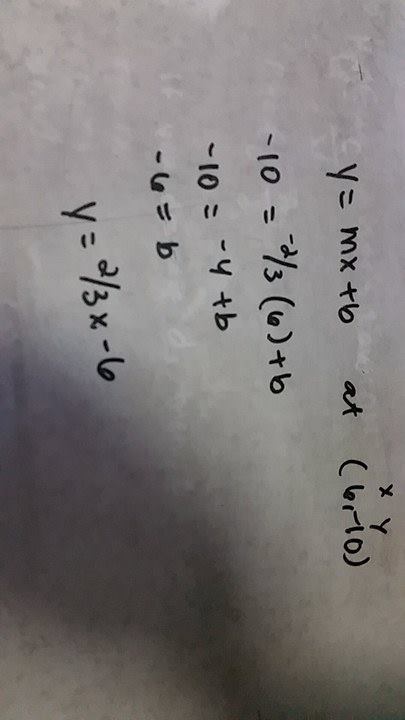 x y
y = mx + b at (6, -10)
-10 = -2/3 (6) + b
-10 = -4 + b
-6 = b
y = 2/3x - 6